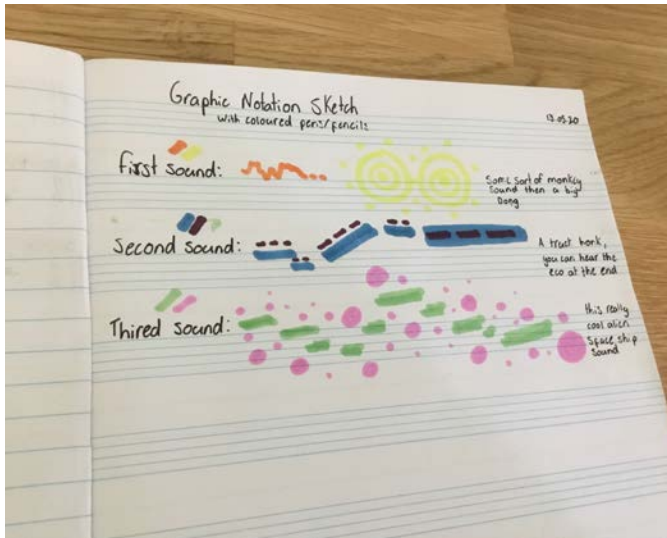 Graphic Notation Sketch
with coloured pens/pencils
13.05.20
First sound:
Some sort of monkey
sound then a big
Dong
Second sound:
A truck honk,
you can hear the
eco at the end
Thired sound:
this really
cool alien
Space ship
sound